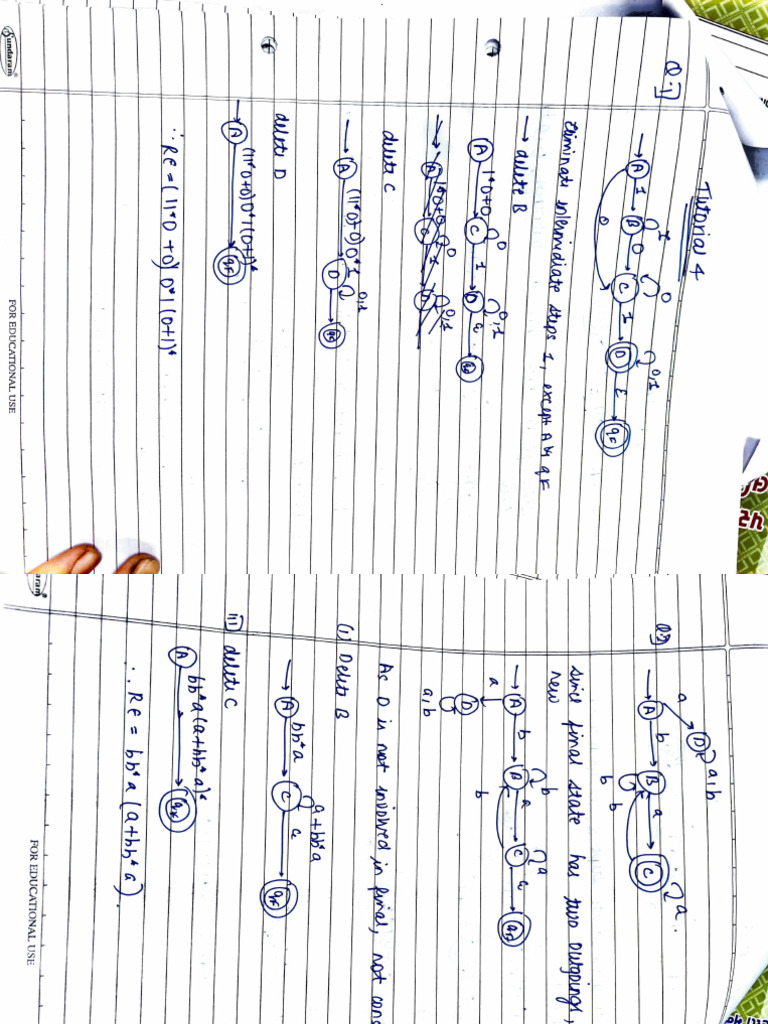 Tutorial 4
Q.1]
A 1 B 0 C 1 D ε qF
1 0 0,1
0
Eliminate intermediate steps 1, except A & qF
→ delete B
A 1*0+0 C 1 D ε
0 0,1
delete C
A (11*0+0)0*1 D
0,1
delete D
A (11*0+0)0*1(0+1)* qF
∴ RE = (11*0 +0) 0*1 (0+1)*
Sundaram®
FOR EDUCATIONAL USE
a D a,b
A b B a C a
b b
since final state has two outgoings,
new
A b B a C ε qF
a b b a
D
a,b
As D is not involved in final, not cons
(i) Delete B
A bb*a C ε qF
a+bb*a
ii) delete C
A bb*a(a+bb*a)* qF
∴ RE = bb*a (a+bb*a)
daram®
FOR EDUCATIONAL USE